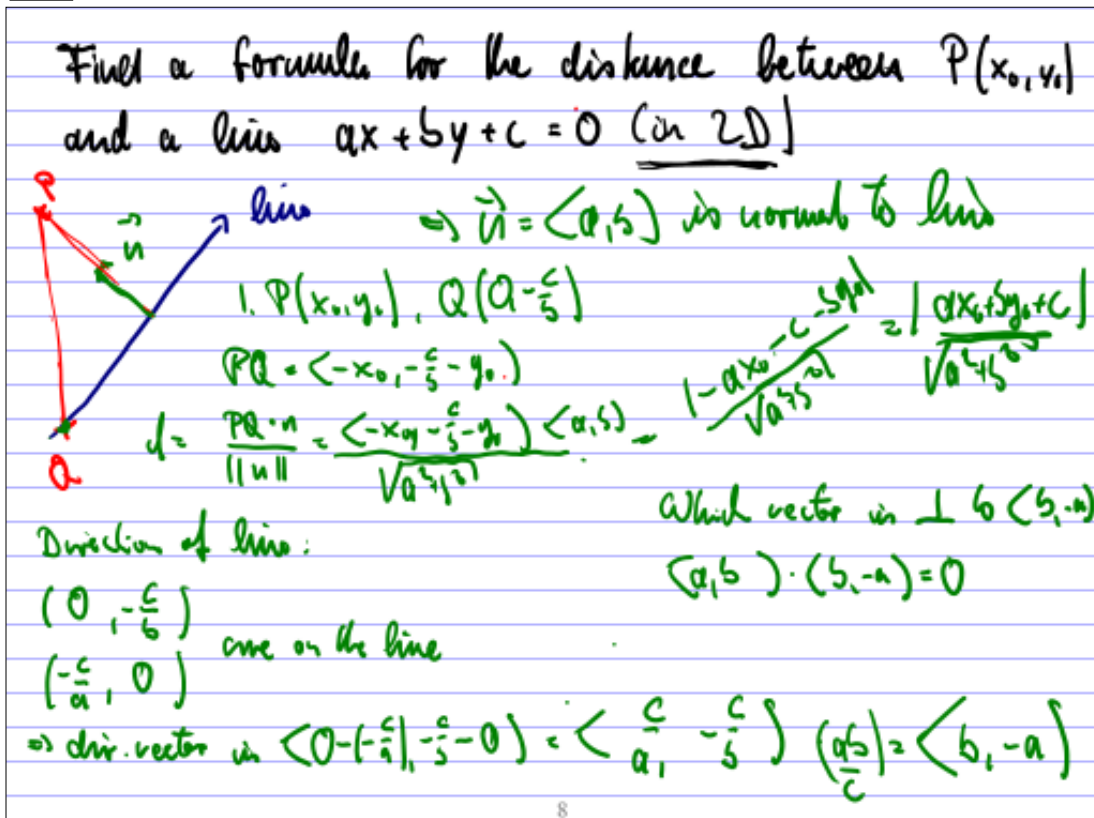 Find a formula for the distance between P(x₀, y₀)
and a line ax + by + c = 0 (in 2D)
P
n⃗
line
Q
⇒ n⃗ = <a,b> is normal to line
1. P(x₀,y₀), Q(0 -c/b)
PQ = <-x₀, -c/b - y₀>
d = PQ·n/||n|| = <-x₀, -c/b - y₀> <a,b>/√(a²+b²) = |-ax₀ - c - by₀|/√(a²+b²) = |ax₀+by₀+c|/√(a²+b²)
Which vector is ⊥ to <b,-a>
<a,b> · <b,-a> = 0
Direction of line:
(0, -c/b)
(-c/a, 0)
are on the line
⇒ dir. vector is <0-(-c/a), -c/b - 0> = <c/a, -c/b> (ab/c) = <b, -a>
8